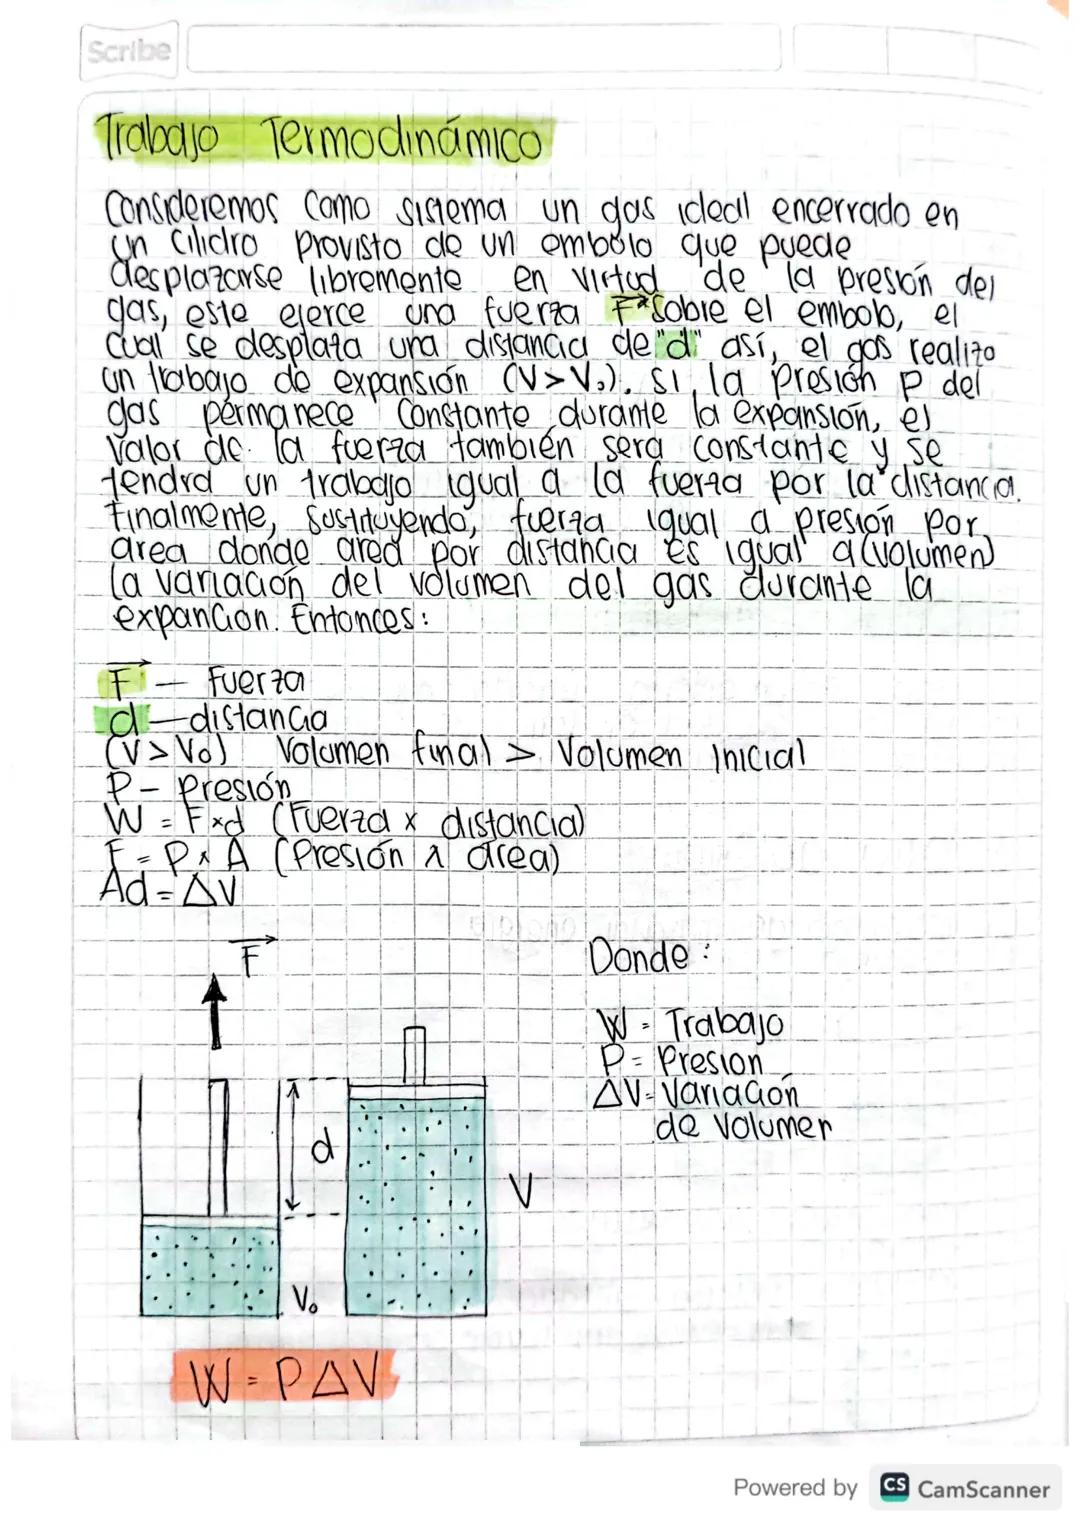 Scribe
Trabajo Termodinámico
Consideremos Como sistema un gas ideal encerrado en
un cilidro provisto de un embolo que puede
desplazarse libremente en virtud de la presión del
gas, este ejerce una fuerza F sobre el embolo, el
cual se desplaza una distancia de "d" así, el gas realizo
un trabajo de expansión (V>V₀). si la presión P del
gas permanece constante durante la expansión, el
valor de la fuerza también sera constante y se
tendra un trabajo igual a la fuerza por la distancia.
Finalmente, sustituyendo, fuerza igual a presión por
area donde area por distancia es igual a (volumen)
la variación del volumen del gas durante la
expancion. Entonces:
F — Fuerza
d — distancia
(V>V₀) Volumen final > Volumen Inicial
P - Presión
W = F x d (Fuerza x distancia)
F = P x A (Presión x área)
Ad = ΔV
F
Donde:
W = Trabajo
P = Presion
ΔV = Variación
de Volumen
d
V
V₀
W = PΔV
Powered by CS CamScanner